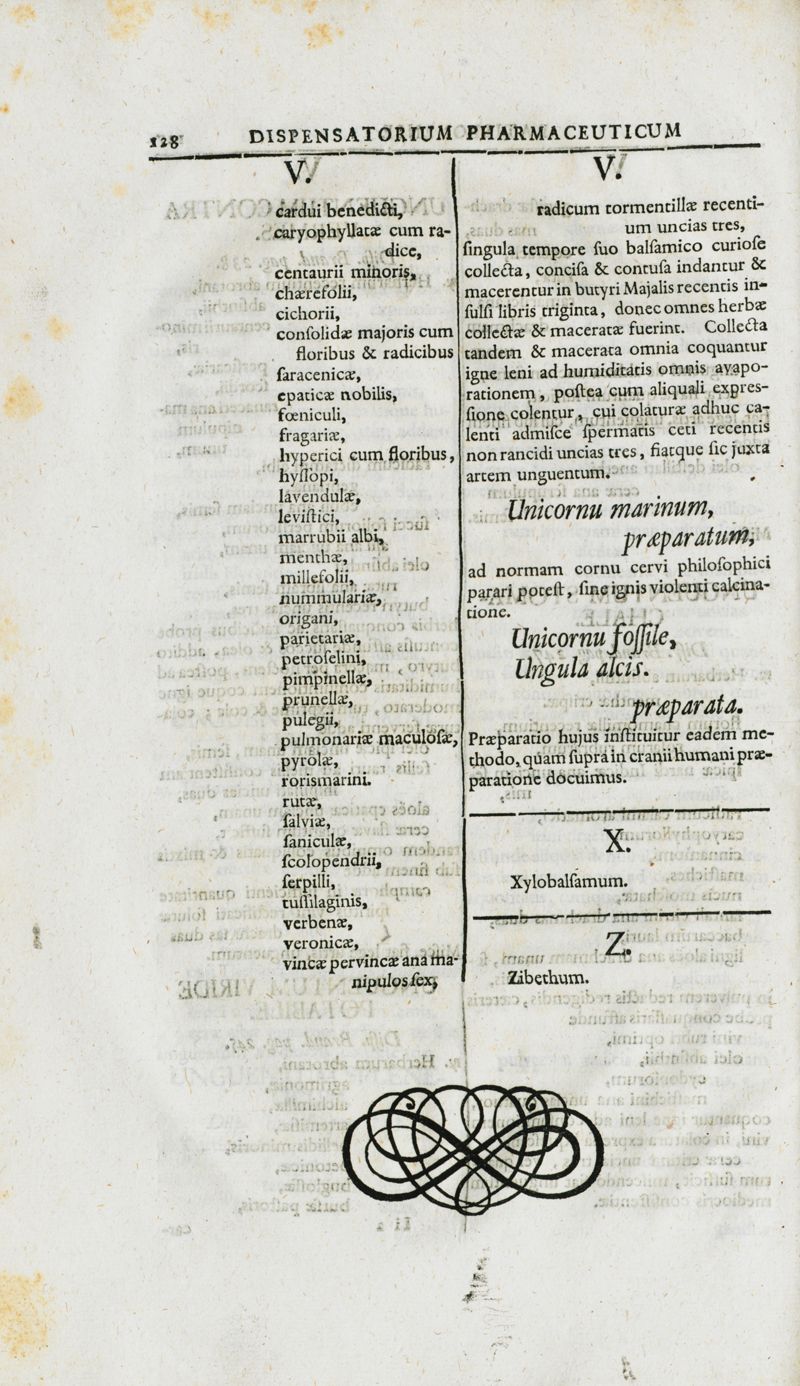 128 DISPENSATORIUM PHARMACEUTICUM
V.
cardui benedicti,
caryophyllatæ cum ra-
dice,
centaurii minoris,
chærefolii,
cichorii,
conſolidæ majoris cum
floribus & radicibus
ſaracenicæ,
epaticæ nobilis,
fœniculi,
fragariæ,
hyperici cum floribus,
hyſſopi,
lavendulæ,
leviſtici,
marrubii albi,
menthæ,
millefolii,
nummulariæ,
origani,
parietariæ,
petroſelini,
pimpinellæ,
prunellæ,
pulegii,
pulmonariæ maculoſæ,
pyrolæ,
rorismarini.
rutæ,
ſalviæ,
ſaniculæ,
ſcolopendrii,
ſerpilli,
tuſſilaginis,
verbenæ,
veronicæ,
vincæ pervincæ ana ma-
nipulos ſex,
V.
radicum tormentillæ recenti-
um uncias tres,
ſingula tempore ſuo balſamico curioſe
collecta, conciſa & contuſa indantur &
macerentur in butyri Majalis recentis in-
ſulſi libris triginta, donec omnes herbæ
collectæ & maceratæ fuerint. Collecta
tandem & macerata omnia coquantur
igne leni ad humiditatis omnis avapo-
rationem, poſtea cum aliquali expreſ-
ſione colentur, cui colaturæ adhuc ca-
lenti admiſce ſpermatis ceti recentis
non rancidi uncias tres, fiatque ſic juxta
artem unguentum.
Unicornu marinum,
præparatum,
ad normam cornu cervi philoſophici
parari poteſt, ſine ignis violenti calcina-
tione.
Unicornu foſſile,
Ungula alcis.
præparata.
Præparatio hujus inſtituitur eadem me-
thodo, quam ſupra in cranii humani præ-
paratione docuimus.
X.
Xylobalſamum.
Z.
Zibethum.